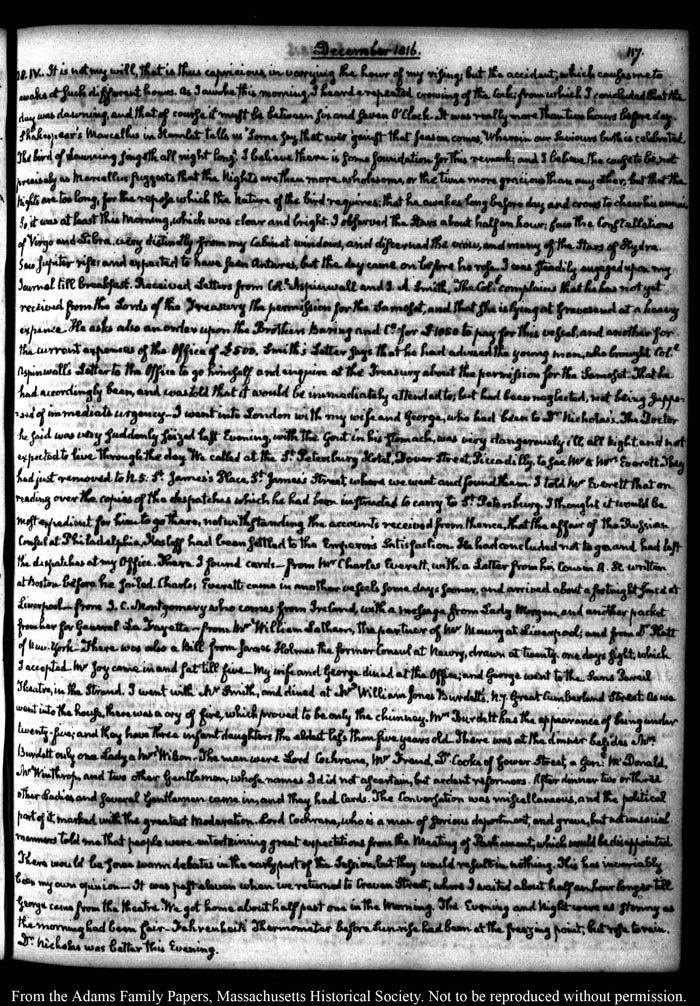 December 1816.
117.
18. IV. It is not my will, that is thus capricious, in varying the hour of my rising; but the accident, which causes me to
awake at such different hours. As I awoke this morning, I heard a repeated crowing of the Cock; from which I concluded that the
day was dawning, and that of course it must be between six and seven O'Clock. It was really more than two hours before day.
Shakespear's Marcellus in Hamlet tells us "Some say, that ever 'gainst that season comes, Wherein our Saviours birth is celebrated,
The bird of dawning singeth all night long." I believe there is some foundation for this remark; and I believe the cause to be not
precisely as Marcellus suggests that the Nights are then more wholesome, or the time more gracious than any other, but that the
Nights are too long, for the repose which the Nature of the bird requires; that he awakes long before day and crows to cheer his
So, it was at least this Morning, which was clear and bright. I observed the Stars about half an hour; saw the Constellations
of Virgo and Libra, very distinctly from my Cabinet windows, and discerned the crow, and many of the Stars of Hydra.
Saw Jupiter rise; and expected to have seen Antares, but the day came on before he rose. I was steadily engaged upon my
Journal till breakfast. Received Letters from Col.l Aspinwall and J. A. Smith. The Col.l complains that he has not yet
received from the Lords of the Treasury the permission for the Samoset, and that she is lying at Gravesend at a heavy
expence. He asks also an order upon the Brothers Baring and C.o for £1050 to pay for this vessel, and another for
the current expences of the Office of £500. Smith's Letter says that he had advised the young man, who brought Col.l
Aspinwall's Letter to the Office to go himself and enquire at the Treasury about the permission for the Samoset. That he
had accordingly been, and was told that it would be immediately attended to; but had been neglected, not being suppo-
-sed of immediate urgency— I went into London with my wife and George, who had been to D.r Nicholas's. The Doctor
he said was very suddenly seized last Evening, with the Gout in his stomach, was very dangerously ill, all Night, and not
expected to live through the day. We called at the S.t Petersburg Hotel, Dover Street, Piccadilly, to see M.r & M.rs Everett. They
had just removed to N. 5. S.t James's Place, S.t James's Street, where we went and found them. I told M.r Everett that on
reading over the copies of the despatches which he had been instructed to carry to S.t Petersburg, I thought it would be
most expedient for him to go there, notwithstanding the accounts received from thence, that the affair of the Russian
Consul at Philadelphia, Kosloff had been settled to the Emperor's Satisfaction. He had concluded not to go and had left
the despatches at my Office. There I found cards— from M.r Charles Everett, with a Letter from his Cousin A. H. written
at Boston before he sailed. Charles Everett came in another vessel some days sooner, and arrived about a fortnight since at
Liverpool— from J. C. Montgomery who comes from Ireland, with a message from Lady Morgan, and another packet
from her for General La Fayette— from M.r William Latham, the partner of M.r Maury at Liverpool; and from D.r Platt
of New-York. There was also a Bill from James Holmes the former Consul at Newry, drawn at twenty-one days sight, which
I accepted. M.r Joy came in and sat till five— My wife and George dined at the Office; and George went to the Sans Pareil
Theatre, in the Strand. I went with M.r Smith, and dined at M.r William Jones Burdett's, N. 7. Great Cumberland Street. As we
went into the house, there was a cry of fire, which proved to be only the chimney. M.rs Burdett has the appearance of being under
twenty-five; and they have three infant daughters the eldest less than five years old. There was at the dinner besides M.rs
Burdett only one Lady a M.rs Wilson. The men were Lord Cochrane, M.r Frend, D.r Cooke of Gower Street, a Gen.l McDonald,
M.r Winthrop, and two other Gentlemen, whose names I did not ascertain, but ardent reformers. After dinner two or three
other Ladies and several Gentlemen came in, and they had Cards. The Conversation was miscellaneous, and the political
part of it, marked with the greatest Moderation. Lord Cochrane, who is a man of serious deportment, and grave, but not unsocial
manners told me that people were entertaining great expectations from the Meeting of Parliament, which would be disappointed
There would be some warm debates in the early part of the Session, but they would result in nothing. This has invariably
been my own opinion— It was past eleven when we returned to Craven Street, where I waited about half an hour longer till
George came from the theatre. We got home about half past one in the Morning. The Evening and Night were as stormy as
the morning had been fair— Fahrenheit's Thermometer before sunrise had been at the freezing point; but rose to rain.
D.r Nicholas was better this Evening.
From the Adams Family Papers, Massachusetts Historical Society. Not to be reproduced without permission